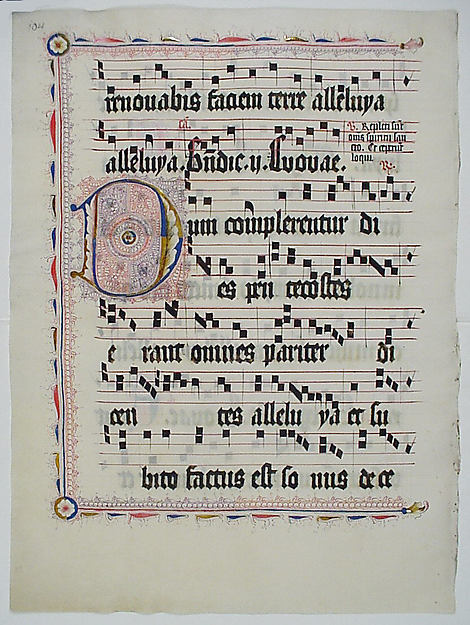 renouabis faciem terre alleluya
alleluya. Bn̄dic. y. Euouae.
V. Repleti sūt
oms spiritu san
cto. Et ceperūt
loqui.
Dum complerentur di
es pen tecostes
e rant omnes pariter di
cen tes allelu ya et su
bito factus est so nus de ce